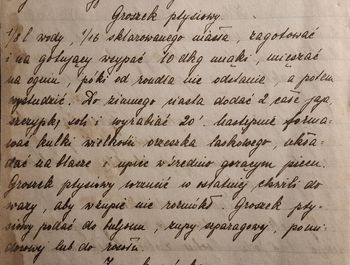 Groszek ptysiowy.
1/8 l wody, 1/16 sklarowanego masła, zagotować
i na gotujący wsypać 10 dkg mąki, mieszać
na ogniu, póki od rondla nie odstanie a potem
wystudzić. Do zimnego ciasta dodać 2 całe jaja,
szczyptę soli i wyrabiać 20'. Następnie formo-
wać kulki wielkości orzeszka laskowego, ukła-
dać na blasze i upiec w średnio gorącym piecu.
Groszek ptysiowy wrzucić w ostatniej chwili do
wazy, aby w zupie nie rozmiękł. Groszek pty-
siowy podać do buljonu, zupy szparagowej, pomi-
dorowej lub do rosołu.